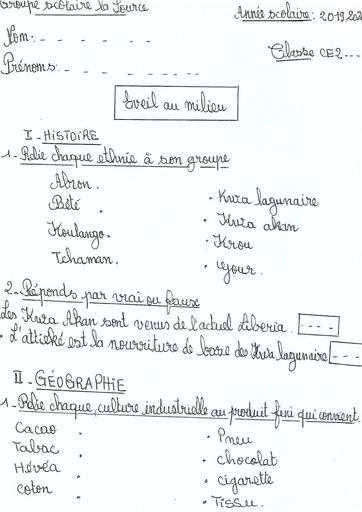 Groupe scolaire la Source
Année scolaire: 2019.202
Nom: - - - - - -
Classe CE2---
Prénoms: - - - - - -
Eveil au milieu
I - HISTOIRE
1 - Relie chaque ethnie à son groupe
Abron .
Bété .
Koulango .
Tchaman .
. Kwa lagunaire
. Kwa akan
. Krou
. Gour .
2 - Réponds par vrai ou faux
Les Kwa Akan sont venus de l'actuel Liberia. ----
. L'attiéké est la nourriture de base des Kwa lagunaire ---
II - GÉOGRAPHIE
1 - Relie chaque culture industrielle au produit fini qui convient.
Cacao .
Tabac .
Hévéa .
coton .
. Pneu
. chocolat
. cigarette
. Tissu .